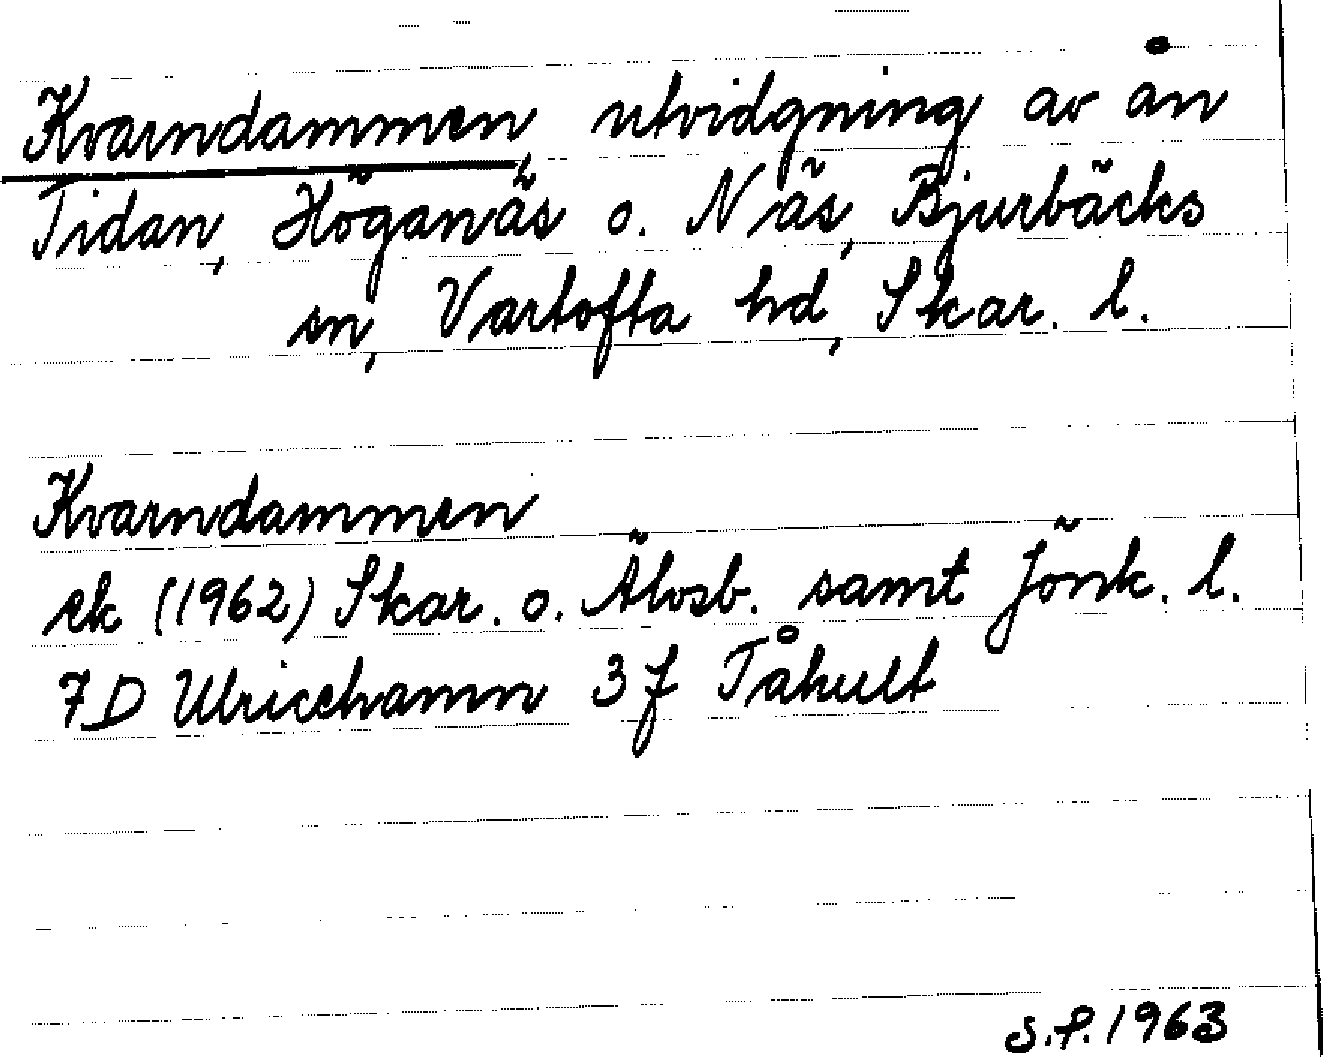 Kvarndammen, utvidgning av ån
Tidan, Höganäs o. Näs, Bjurbäcks
sn, Vartofta hd, Skar. l.
Kvarndammen
ek (1962) Skar. o. Älvsb. samt Jönk. l.
7D Ulricehamn 3f Tåhult
S.F. 1963